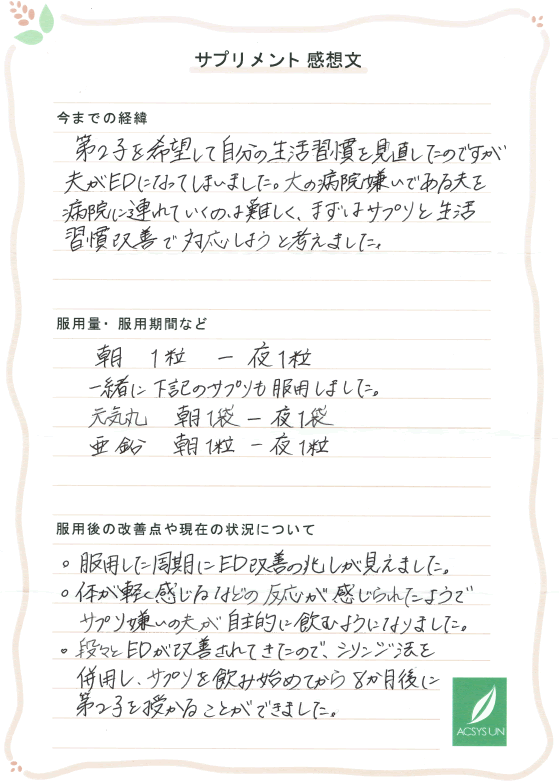 サプリメント 感想文
今までの経緯
第2子を希望して自分の生活習慣を見直したのですが
夫がEDになってしまいました。大の病院嫌いである夫を
病院に連れていくのは難しく、まずはサプリと生活
習慣改善で対応しようと考えました。
服用量・服用期間など
朝 1粒 ー 夜1粒
一緒に下記のサプリも服用しました。
元気丸 朝1袋 ー 夜1袋
亜鉛 朝1粒 ー 夜1粒
服用後の改善点や現在の状況について
。服用した周期にED改善の兆しが見えました。
。体が軽く感じるなどの反応が感じられたようで
サプリ嫌いの夫が自主的に飲むようになりました。
。段々とEDが改善されてきたので、シリンジ法を
併用し、サプリを飲み始めてから8か月後に
第2子を授かることができました。
ACSYSUN